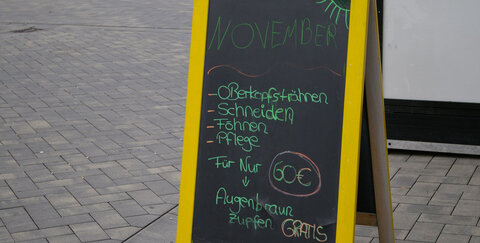 NOVEMBER
- Oberkopfsträhnen
- Schneiden
- Föhnen
- Pflege
Für Nur 60€
Augenbraun
Zupfen GRATIS